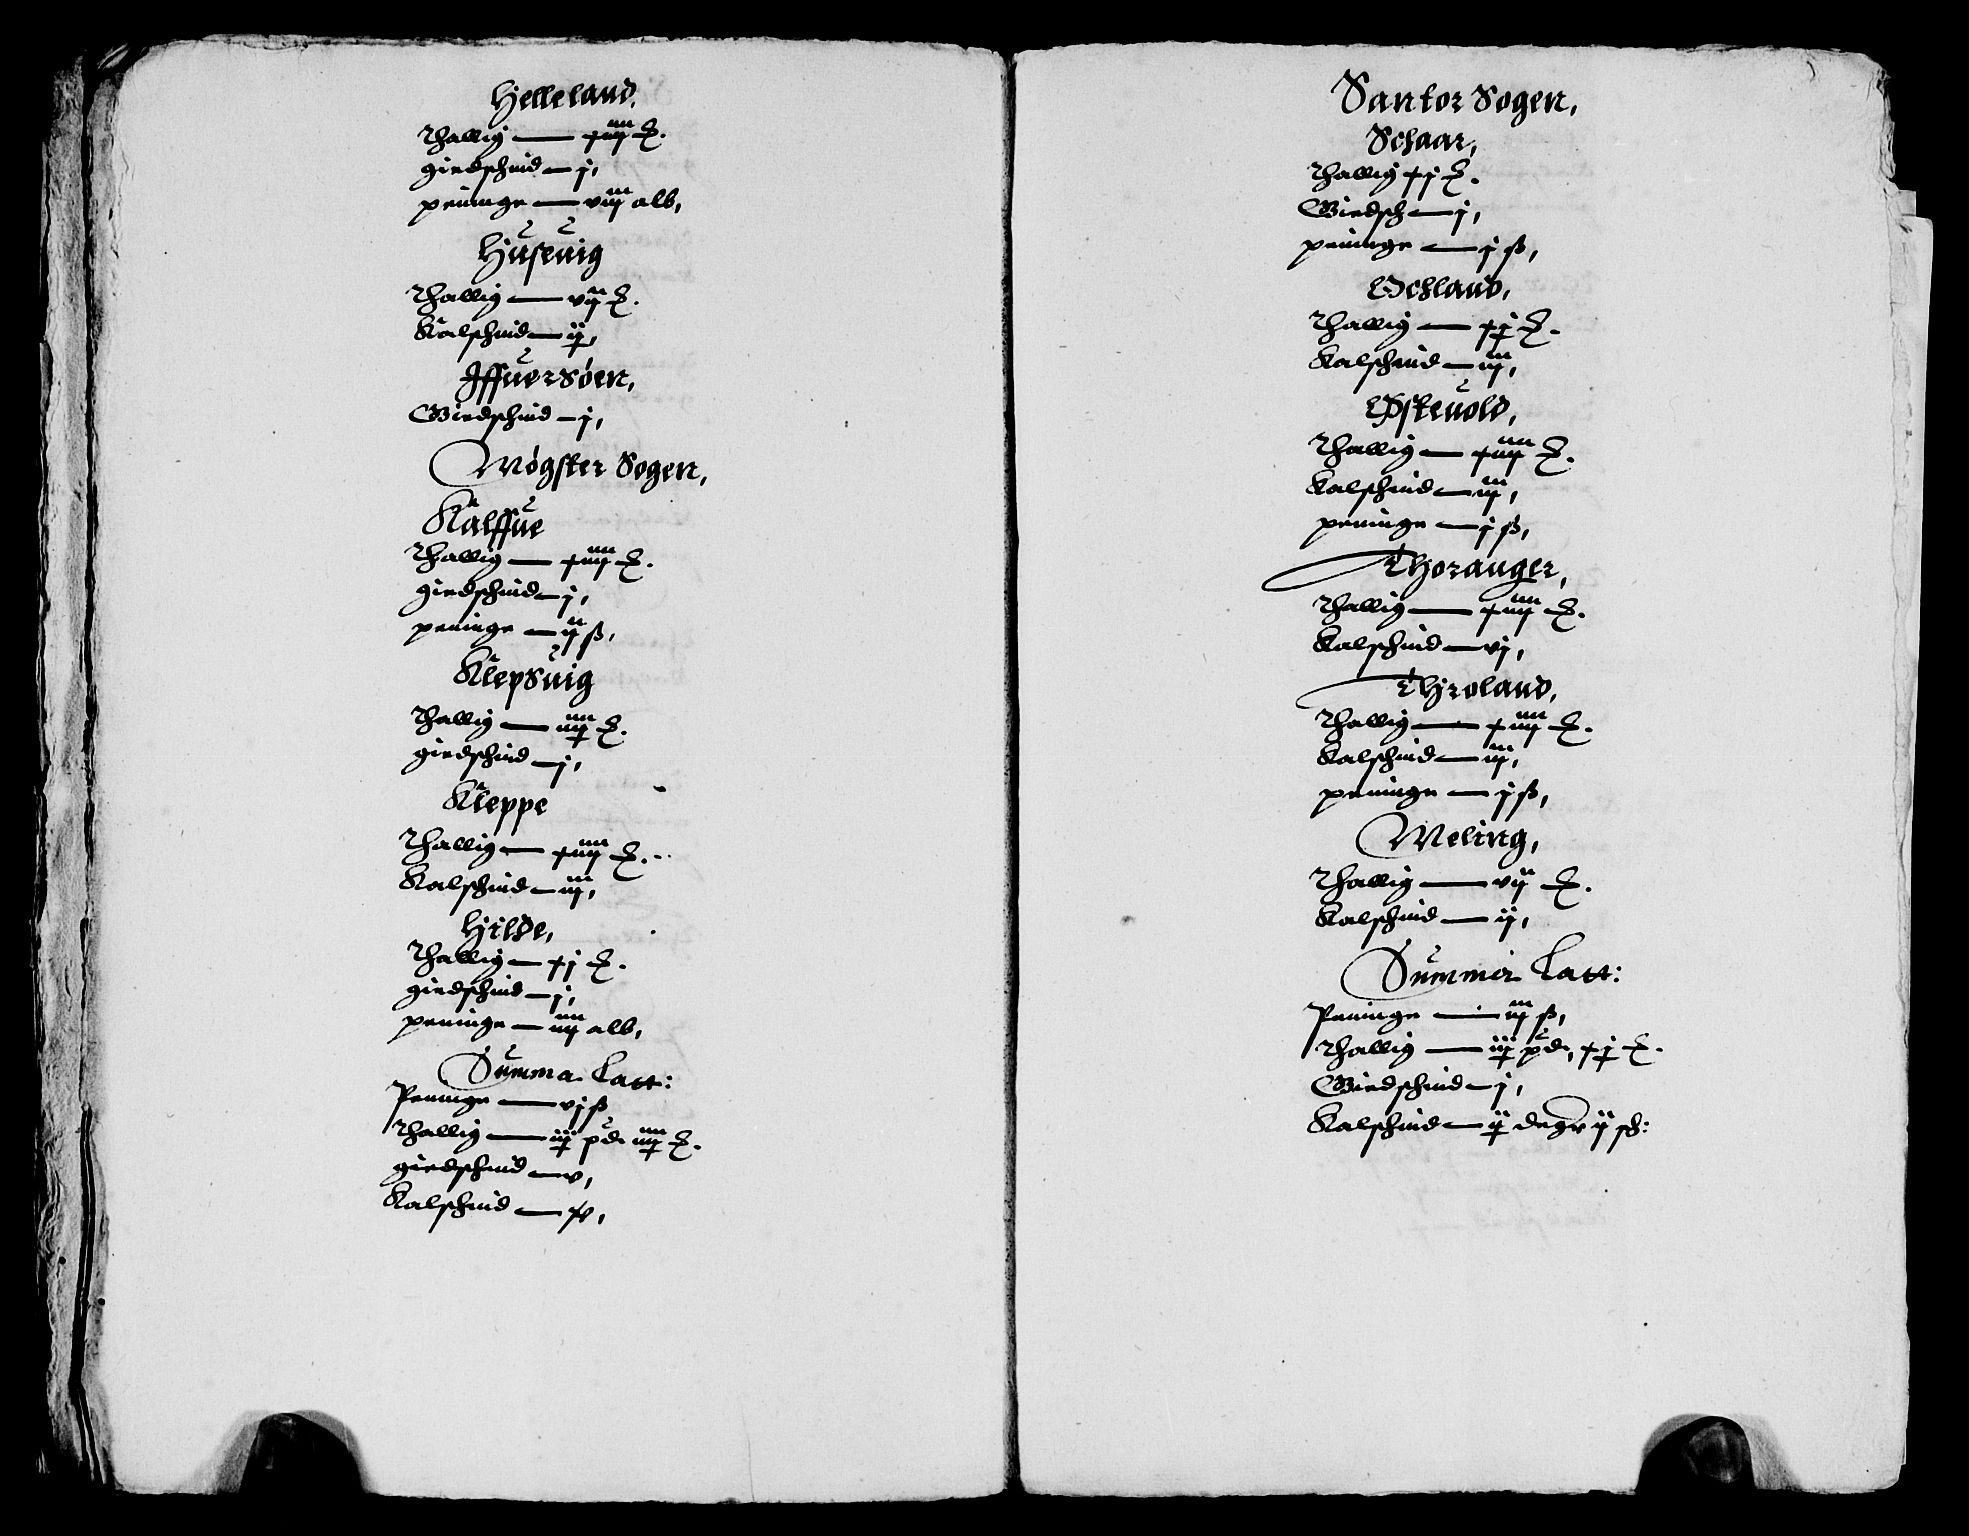 Helleland,
Thallig — xiiij ℔.
giedschind — j,
peninge — viij alb,
Huseuig
Thallig — vij ℔.
Kalschind — ij,
Iffuersøen,
Giedschind — j,
Møgster Sogen,
Kalffue
Thallig — xiiij ℔.
giedschind — j,
peninge — ij ß,
Klepsuig
Thallig — iiij ℔.
giedschind — j,
Kleppe
Thallig — xiiij ℔.
Kalschind — iij,
Hilde,
Thallig — xj ℔.
giedschind — j,
peninge — iiij alb,
Summa Latt:
Peninge — vj ß
Thallig — iij pd iiij ℔.
giedschind — v,
Kalschind —
Santor Sogen,
Schaar,
Thallig xj ℔.
Giedsch — j,
peninge — j ß,
Ochland,
Thallig — xj ℔.
Kalschind — iij,
Østeuold,
Thallig — xiiij ℔.
Kalschind — iij,
peninge — j ß,
Thoranger,
Thallig — xiiij ℔.
Kalschind — vj,
Thjroland,
Thallig — xiiij ℔.
Kalschind — iij,
peninge — j ß,
Meling,
Thallig — vij ℔.
Kalschind — ij,
Summa Latt:
Peninge — iij ß,
Thallig — iij pd, xj ℔.
Giedschind — j,
Kalschind — ij degr ij sch: